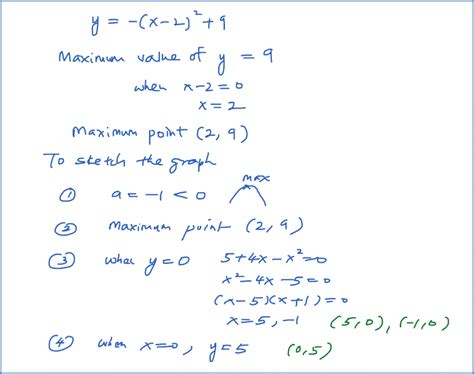 y = -(x-2)² + 9
Maximum value of y = 9
when x-2=0
x=2
Maximum point (2, 9)
To sketch the graph
max
① a = -1 < 0
② Maximum point (2, 9)
③ when y=0 5+4x-x²=0
x²-4x-5=0
(x-5)(x+1)=0
x=5, -1 (5,0), (-1,0)
④ when x=0, y=5 (0,5)